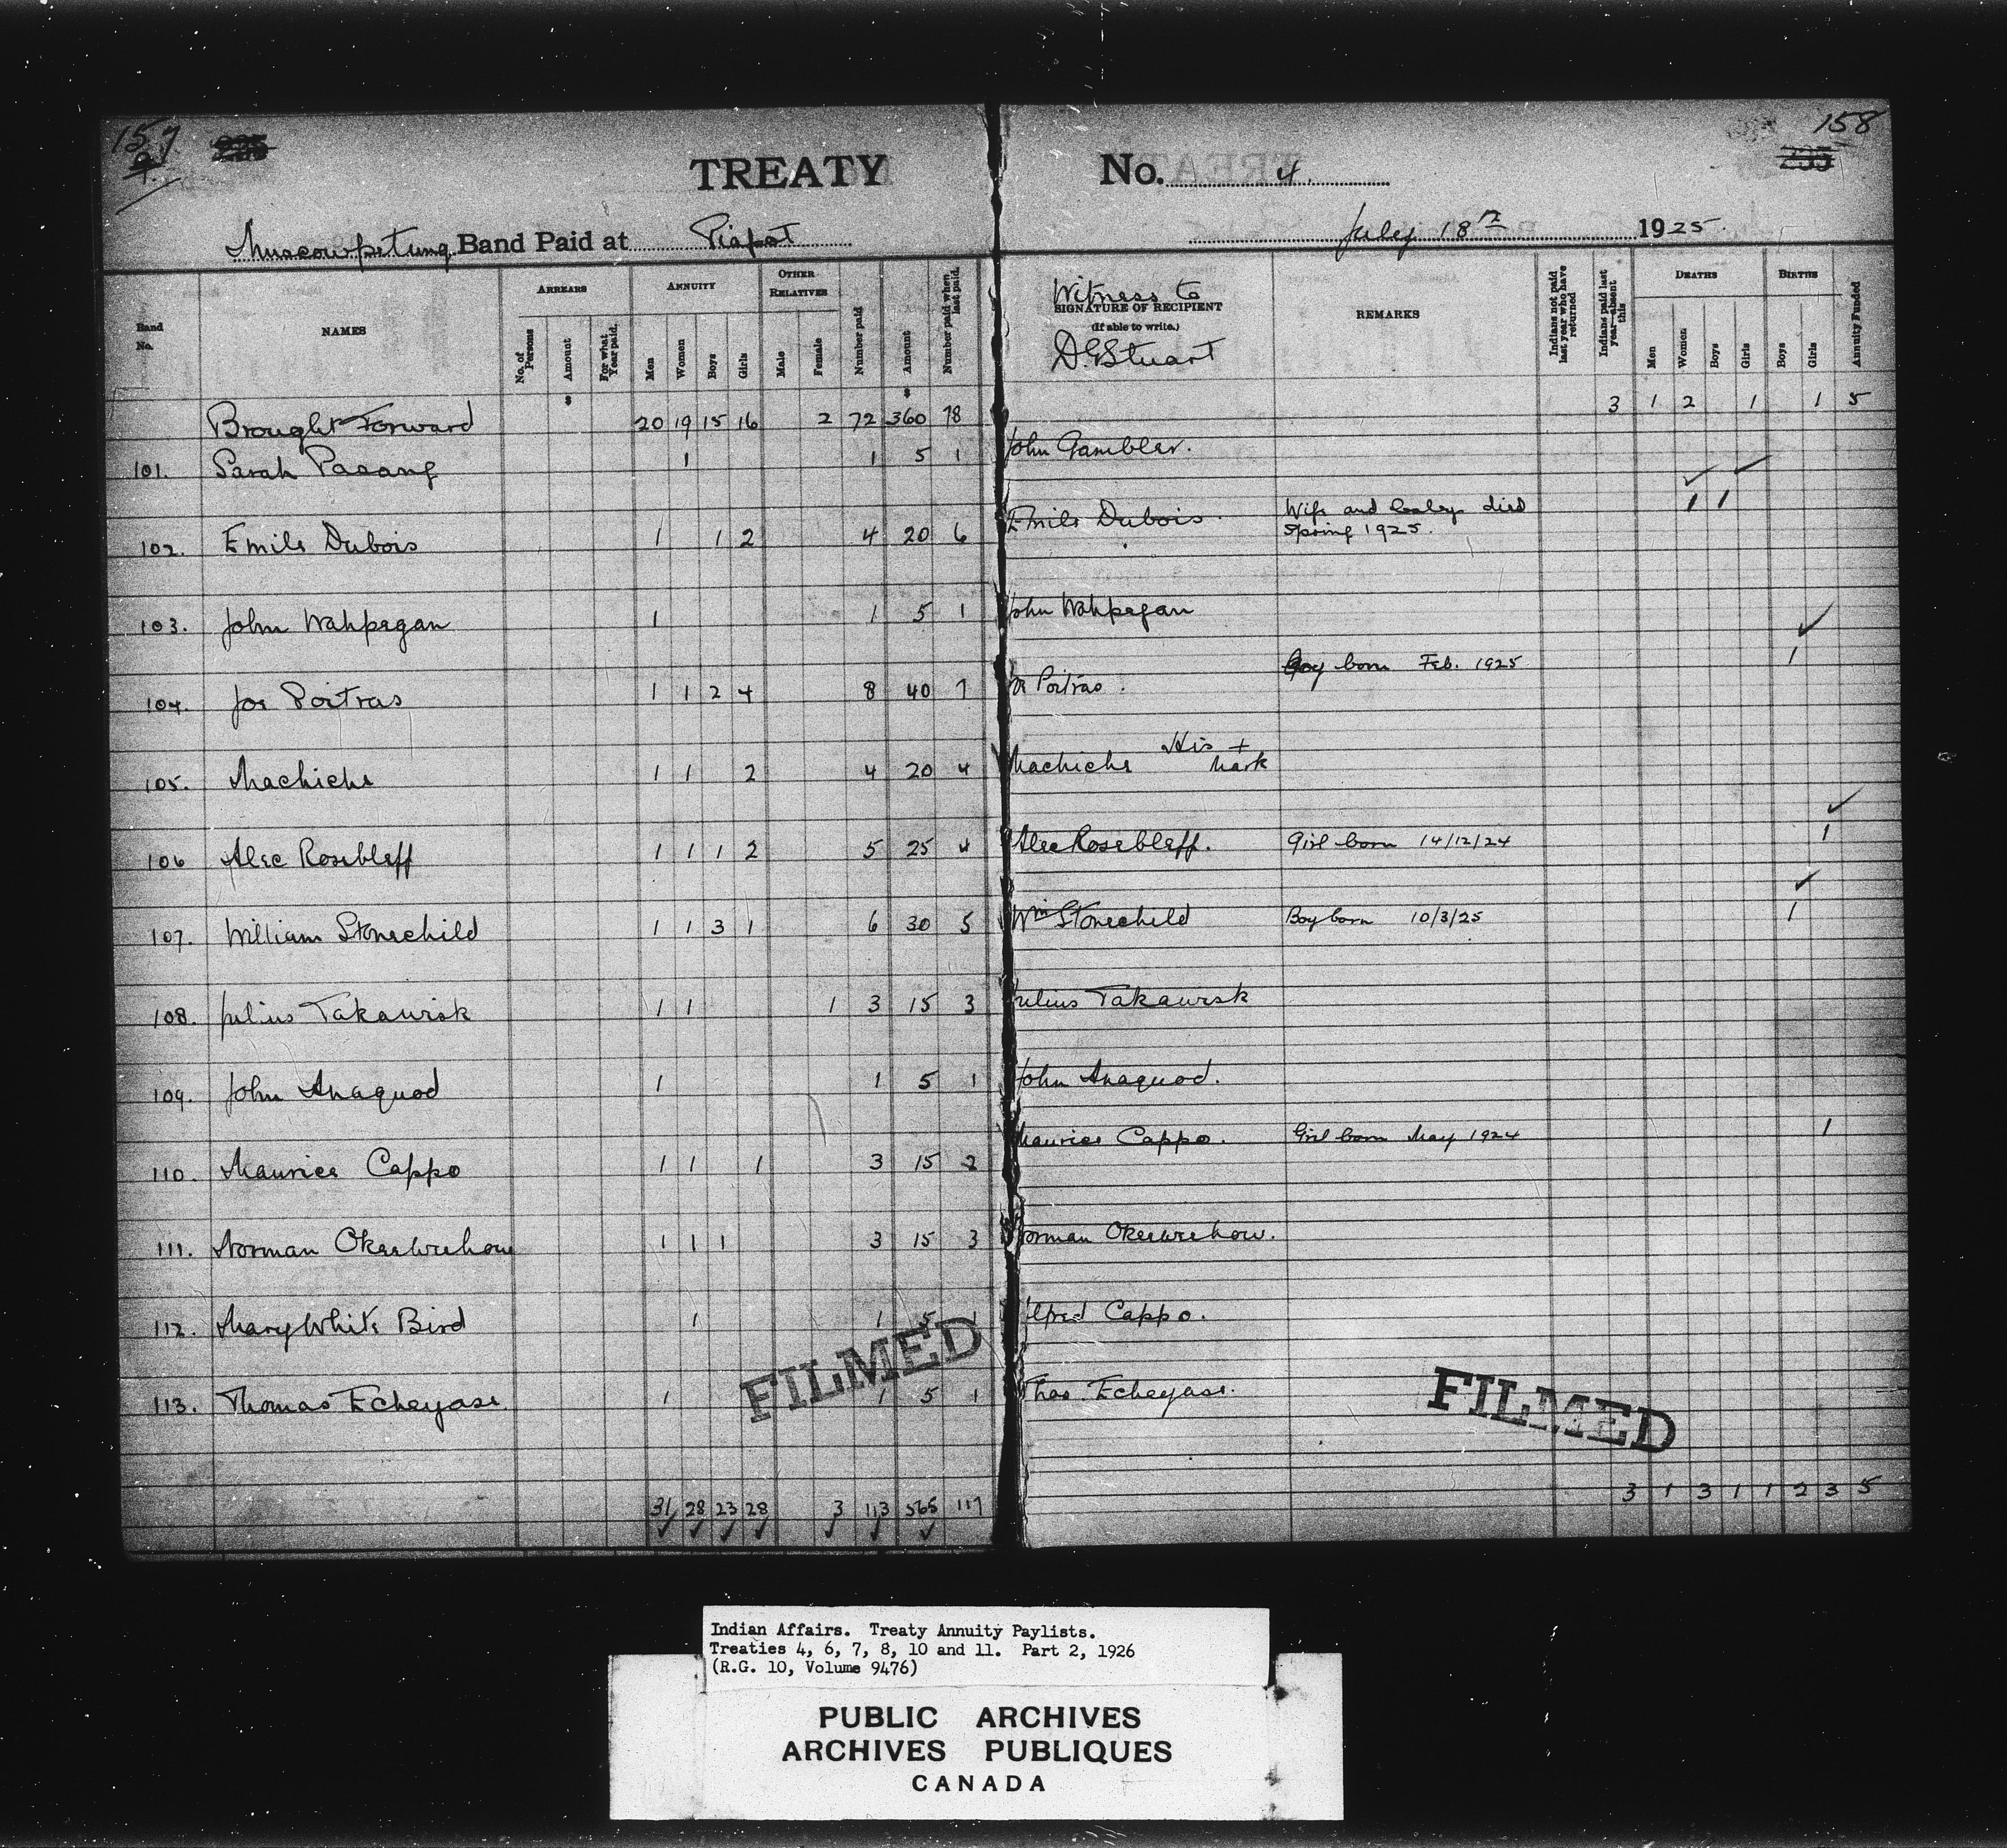 157
9.
158
TREATY No. 4.
Muscowpetung Band Paid at Piapot July 18th 1925.
Band No.
NAMES
ARREARS
No. of Persons
Amount
For what Year paid.
ANNUITY
Men
Women
Boys
Girls
OTHER RELATIVES
Male
Female
Number paid
Amount
Number paid when last paid.
Witness to
SIGNATURE OF RECIPIENT
(If able to write.)
D.G. Stuart
REMARKS
Indians not paid last year who have returned
Indians paid last year—absent this
DEATHS
Men
Women
Boys
Girls
BIRTHS
Boys
Girls
Annuity Funded
Brought Forward 20 19 15 16 2 72 360 78 3 1 2 1 1 5
101. Sarah Pasang 1 1 5 1 John Gambler.
102. Emile Dubois 1 1 2 4 20 6 Emile Dubois. Wife and baby died Spring 1925. 1 1
103. John Wahpegan 1 1 5 1 John Wahpegan
104. Joe Poitras 1 1 2 4 8 40 7 Poitras. Boy born Feb. 1925 1
105. Machiche 1 1 2 4 20 4 Machiche His + Mark
106 Alec Rosebleff 1 1 1 2 5 25 4 Alec Rosebleff. Girl born 14/12/24 1
107. William Stonechild 1 1 3 1 6 30 5 Wm Stonechild Boy born 10/3/25 1
108. Julius Takawisk 1 1 1 3 15 3 Julius Takawisk
109. John Anaquod 1 1 5 1 John Anaquod.
110. Maurice Cappo 1 1 1 3 15 2 Maurice Cappo. Girl born May 1924 1
111. Norman Okeewehow 1 1 1 3 15 3 Norman Okeewehow.
112. Mary White Bird 1 1 5 1 Alfred Cappo.
113. Thomas Echeyase 1 1 5 1 Thos Echeyase.
FILMED
FILMED
31 28 23 28 3 113 565 117 3 1 3 1 1 2 3 5
Indian Affairs. Treaty Annuity Paylists.
Treaties 4, 6, 7, 8, 10 and 11. Part 2, 1926
(R.G. 10, Volume 9476)
PUBLIC ARCHIVES
ARCHIVES PUBLIQUES
CANADA